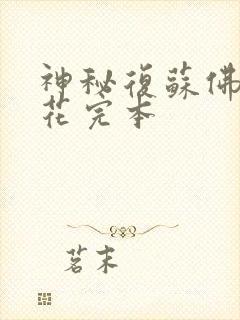 神秘復蘇佛
花完本
茗末